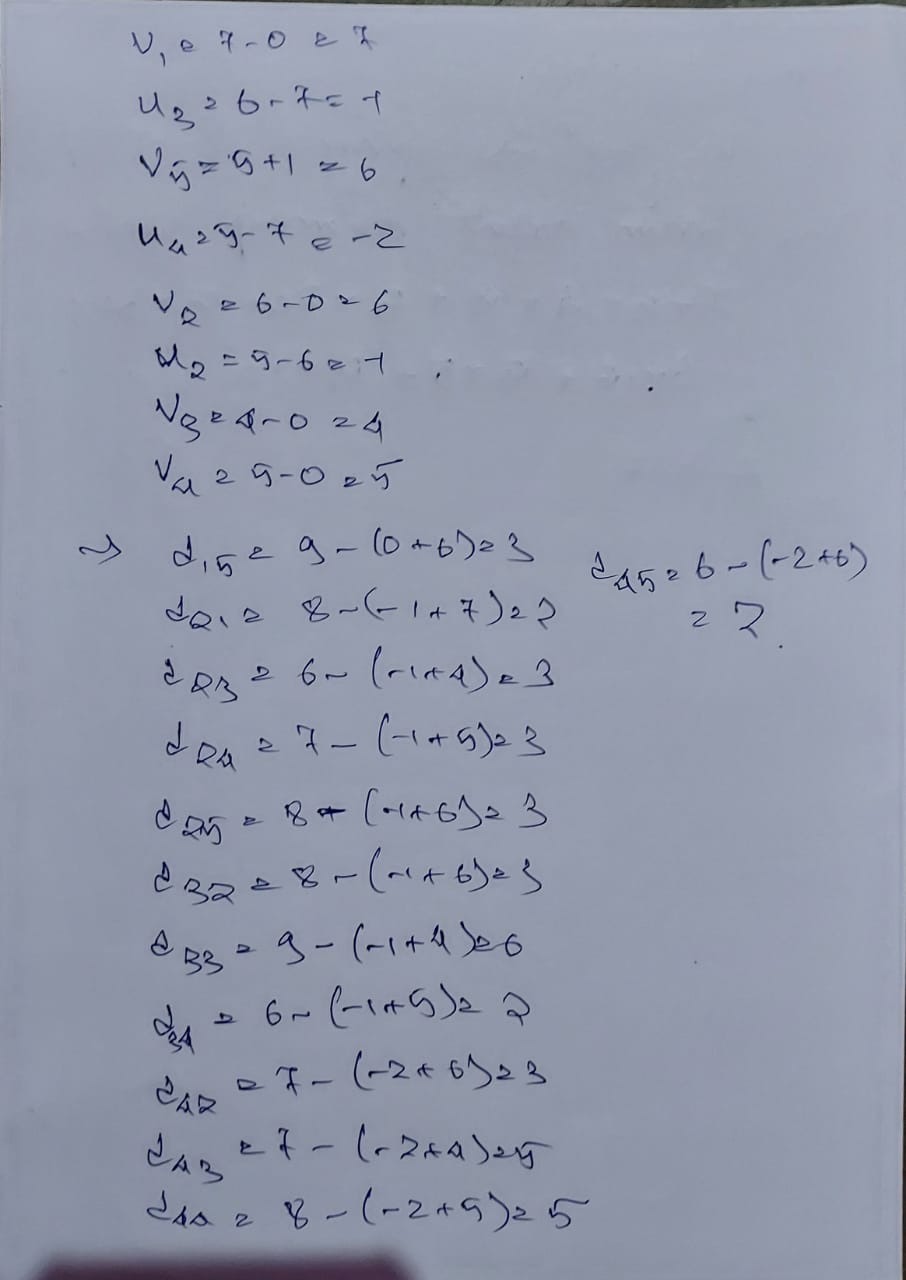 V₁ = 7-0 = 7
u₃ = 6-7 = -1
V₅ = 5+1 = 6
u₄ = 5-7 = -2
V₂ = 6-0 = 6
u₂ = 5-6 = -1
V₃ = 4-0 = 4
V₄ = 5-0 = 5
→ d₁₅ = 9-(0+6) = 3
d₄₅ = 6-(-2+6)
= 2
d₂₁ = 8-(-1+7) = 2
d₂₃ = 6-(-1+4) = 3
d₂₄ = 7-(-1+5) = 3
d₂₅ = 8-(-1+6) = 3
d₃₂ = 8-(-1+6) = 3
d₃₃ = 9-(-1+4) = 6
d₃₄ = 6-(-1+5) = 2
d₄₂ = 7-(-2+6) = 3
d₄₃ = 7-(-2+4) = 5
d₄₄ = 8-(-2+5) = 5